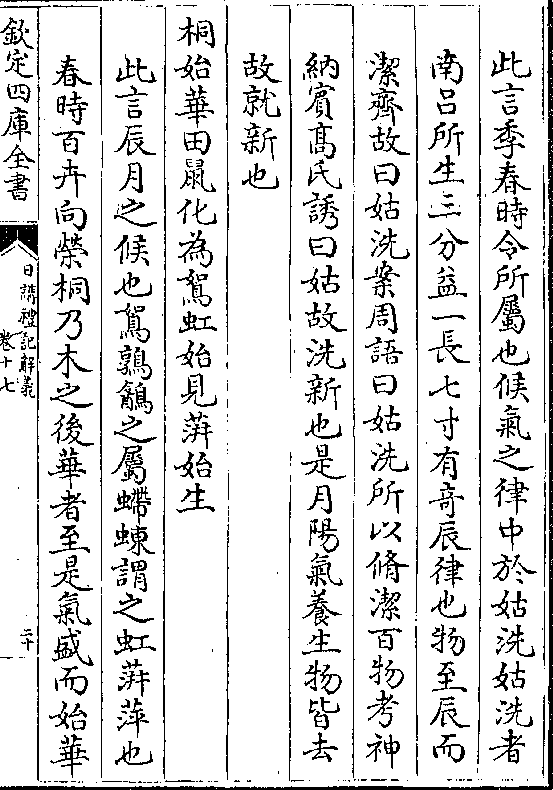 此言季春時令所屬也候氣之律中於姑洗姑洗者
南呂所生三分益一長七寸有竒辰律也物至辰而
潔齊故曰姑洗案周語曰姑洗所以脩潔百物考神
納賓髙氏誘曰姑故洗新也是月陽氣養生物皆去
故就新也
桐始華田鼠化為鴽虹始見蓱始生
此言辰月之候也鴽鶉鷂之屬螮蝀謂之虹蓱萍也
春時百卉向榮桐乃木之後華者至是氣盛而始華
欽定四庫全書
日講禮記解義
卷十七
二十